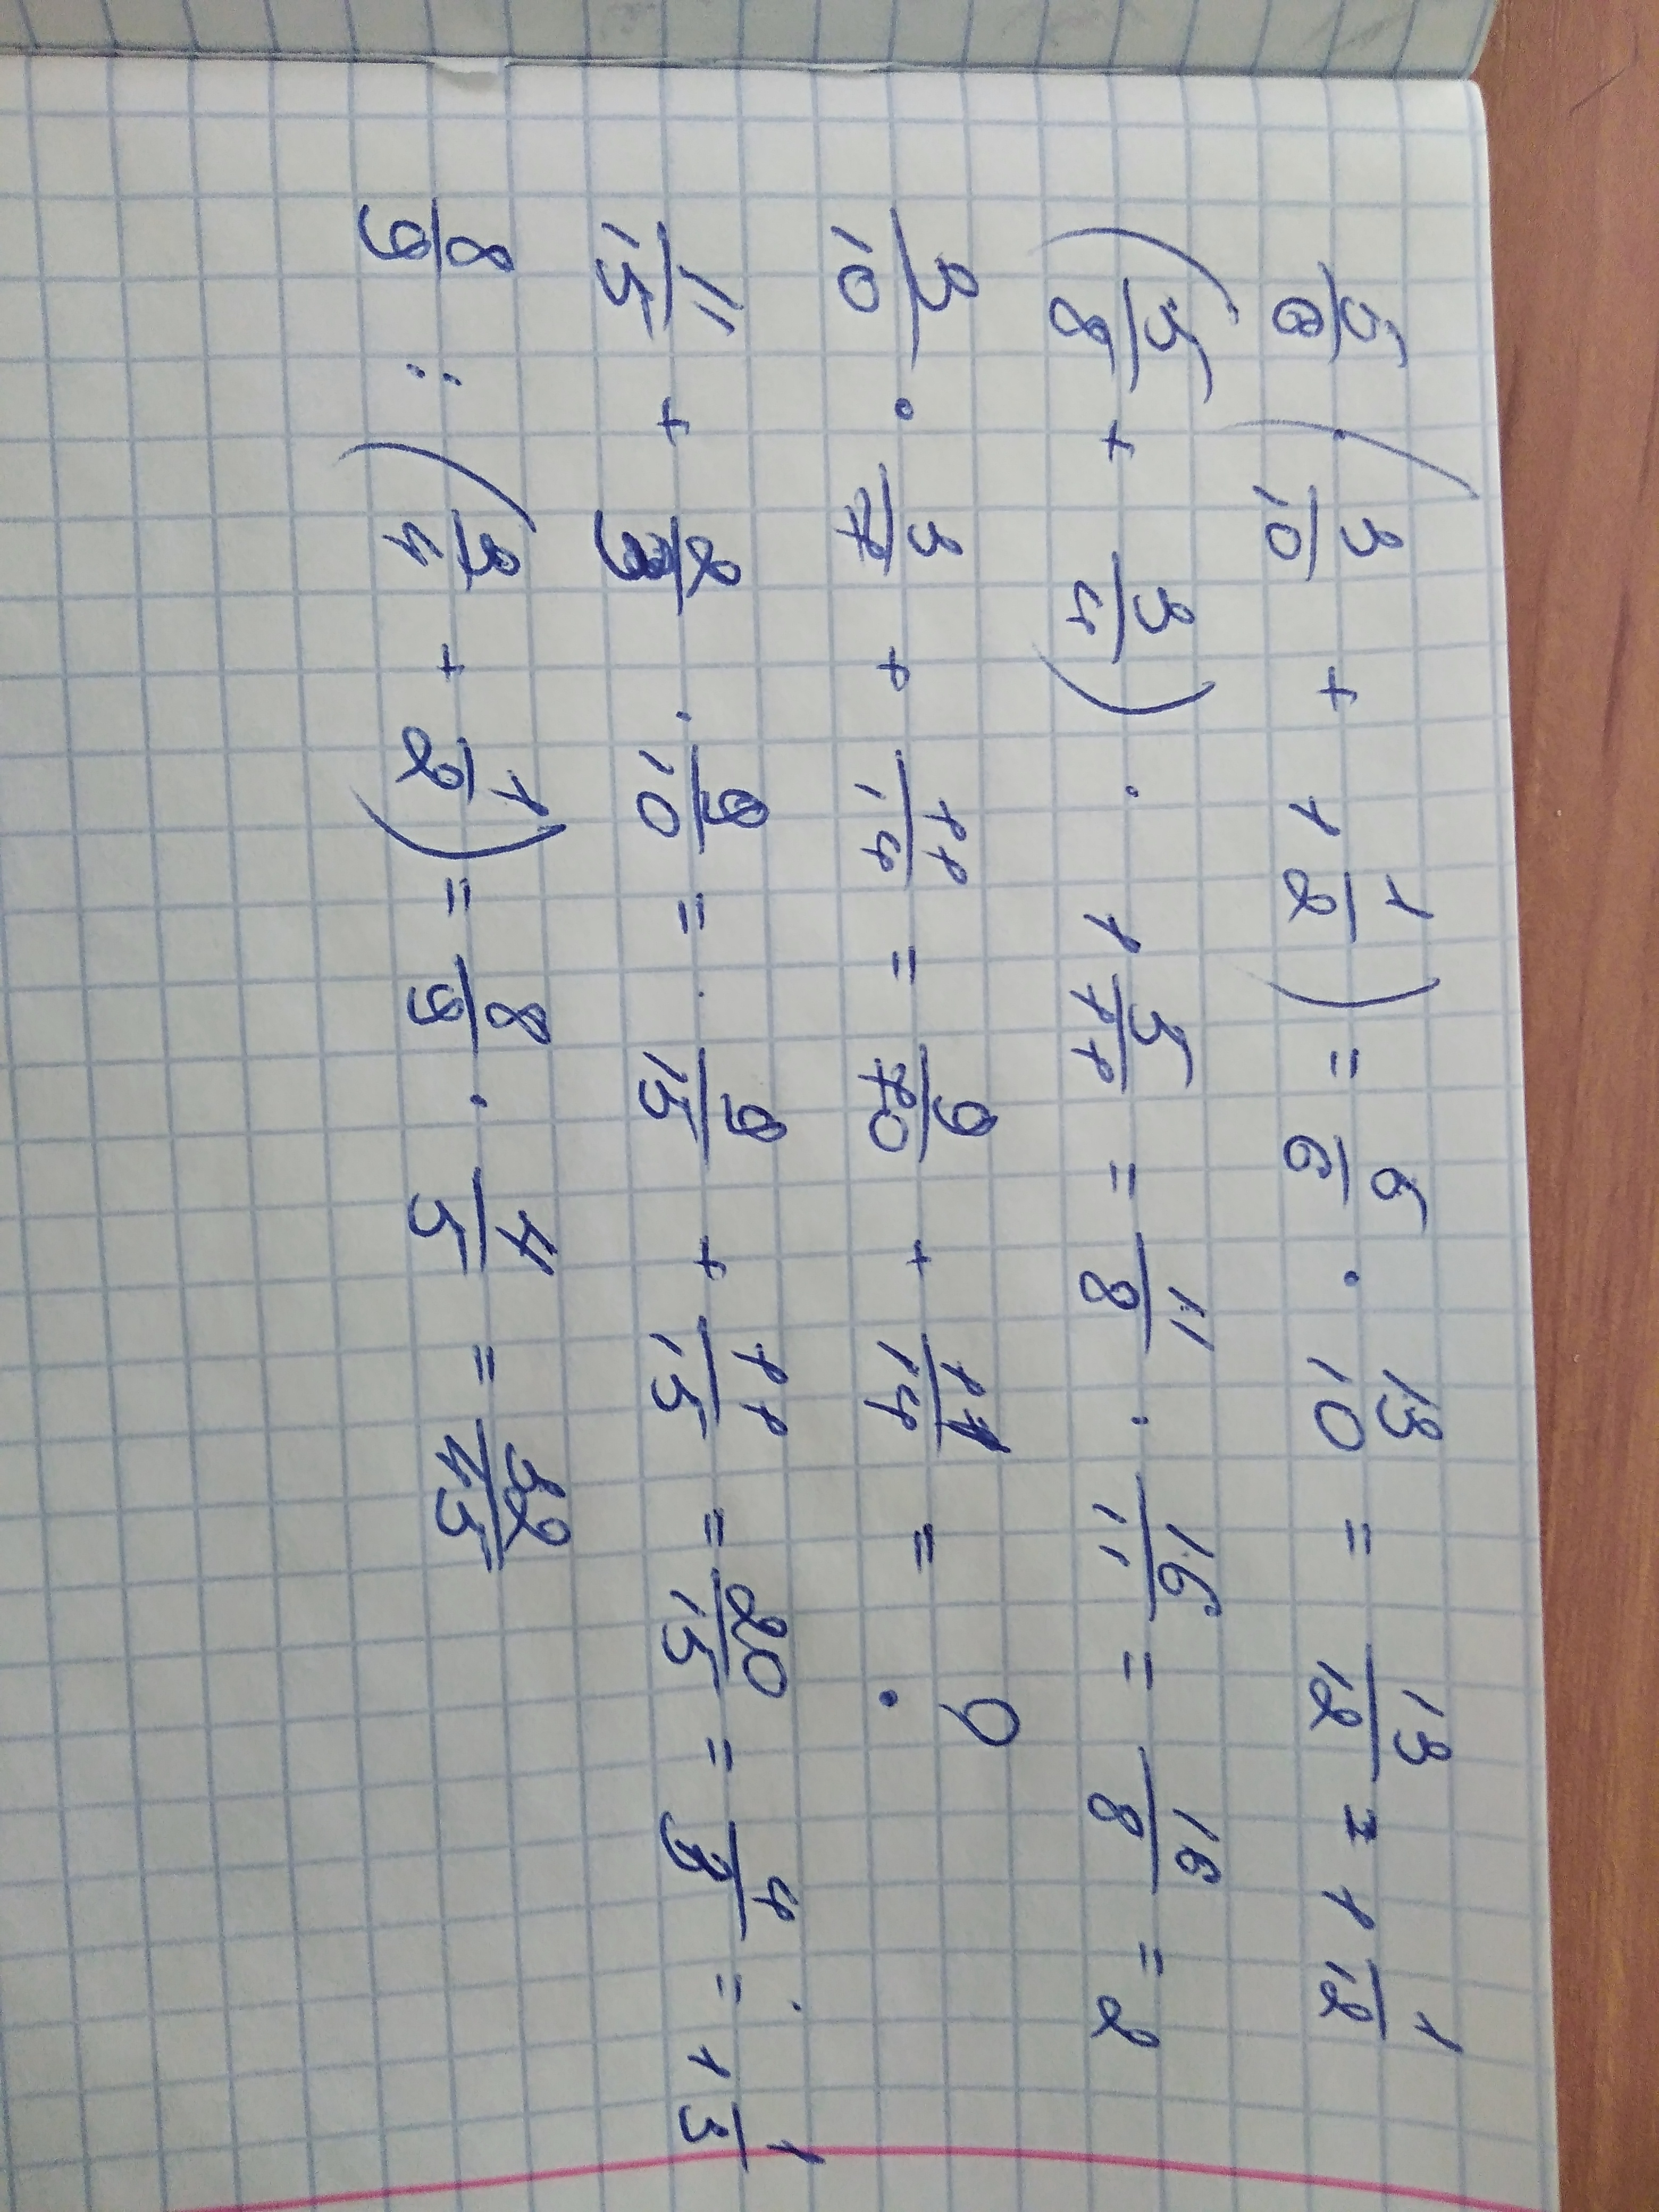 5/6 · (3/10 + 1 1/2) = 5/6 · 13/10 = 13/12 = 1 1/12
(5/8 + 3/4) · 1 5/11 = 11/8 · 16/11 = 16/8 = 2
3/10 · 3/7 + 11/14 = 9/70 + 11/14 =
11/15 + 2/3 · 9/10 = 9/15 + 11/15 = 20/15 = 4/3 = 1 1/3
8/9 : (3/4 + 1/2) = 8/9 · 4/5 = 32/45